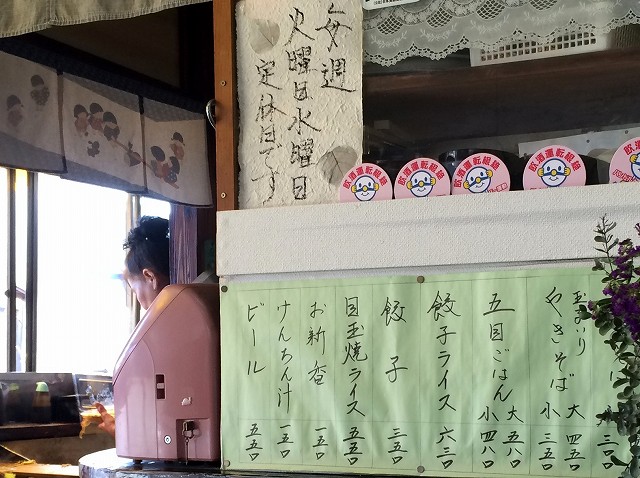 毎週
火曜日水曜日
定休日です
飲酒運転根絶
飲酒運転根絶
飲酒運転根絶
飲酒運転根絶
三〇〇
玉入り 大 四五〇
やきそば 小 三五〇
五目ごはん 大 五八〇
小 四八〇
餃子ライス 六三〇
餃子 三五〇
目玉焼ライス 五五〇
お新香 一五〇
けんちん汁 一五〇
ビール 五五〇